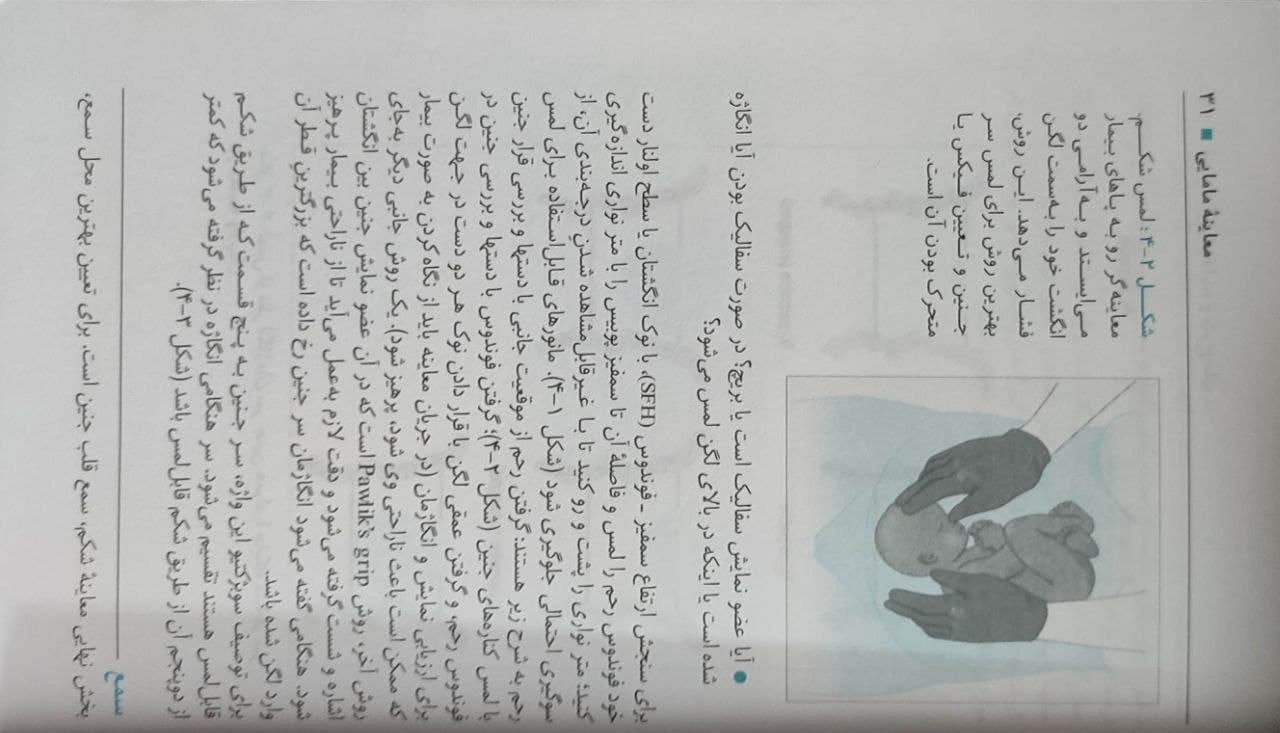 معاینهٔ مامایی ■ ۳۱
شکل ۲-۴: لمس شکم.
معاینه‌گر رو به پاهای بیمار
می‌ایستد و به‌آرامی دو
انگشت خود را به‌سمت لگن
فشار می‌دهد. این روش،
بهترین روش برای لمس سر
جنین و تعیین فیکس یا
متحرک بودن آن است.
● آیا عضو نمایش سفالیک است یا بریچ؟ در صورت سفالیک بودن آیا انگاژه
شده است یا اینکه در بالای لگن لمس می‌شود؟
برای سنجش ارتفاع سمفیز - فوندوس (SFH)، با نوک انگشتان یا سطح اولنار دست
خود فوندوس رحم را لمس و فاصلهٔ آن تا سمفیز پوبیس را با متر نواری اندازه‌گیری
کنید؛ متر نواری را پشت و رو کنید تا با غیرقابل‌مشاهده شدنِ درجه‌بندی آن، از
سوگیری احتمالی جلوگیری شود (شکل ۱-۴). مانورهای قابل‌استفاده برای لمس
رحم به شرح زیر هستند: گرفتن رحم از موقعیت جانبی با دستها و بررسی قرار جنین
با لمس کناره‌های جنین (شکل ۲-۴)؛ گرفتن فوندوس با دستها و بررسی جنین در
فوندوس رحم، و گرفتن عمقی لگن با قرار دادن نوک هر دو دست در جهت لگن
برای ارزیابی نمایش و انگاژمان (در جریان معاینه باید از نگاه کردن به صورت بیمار
که ممکن است باعث ناراحتی وی شود، پرهیز شود). یک روش جانبی دیگر به‌جای
روش آخر، روش Pawlik's grip است که در آن عضو نمایش جنین بین انگشتان
اشاره و شست گرفته می‌شود و دقت لازم به‌عمل می‌آید تا از ناراحتی بیمار پرهیز
شود. هنگامی گفته می‌شود انگاژمان سر جنین رخ داده است که بزرگترین قطر آن
وارد لگن شده باشد.
برای توصیف سوبژکتیو این واژه، سر جنین به پنج قسمت که از طریق شکم
قابل‌لمس هستند تقسیم می‌شود. سر هنگامی انگاژه در نظر گرفته می‌شود که کمتر
از دوپنجم آن از طریق شکم قابل‌لمس باشد (شکل ۳-۴).
سمع
بخش نهایی معاینهٔ شکم، سمع قلب جنین است. برای تعیین بهترین محل سمع،